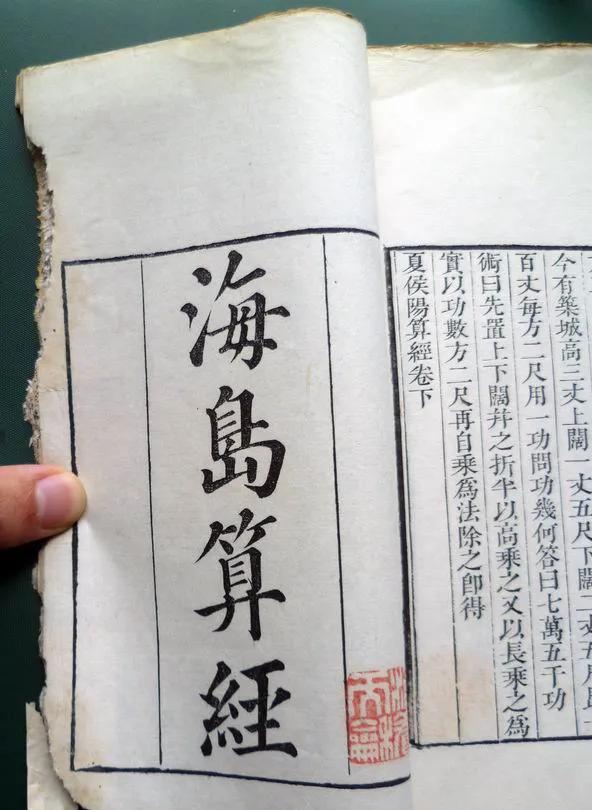 今有築城高三丈上闊一丈五尺下闊二丈五尺長一
百丈每方二尺用一功問功幾何答曰七萬五千功
術曰先置上下闊幷之折半以高乘之又以長乘之爲
實以功數方二尺再自乘爲法除之卽得
夏侯陽算經卷下
海島算經